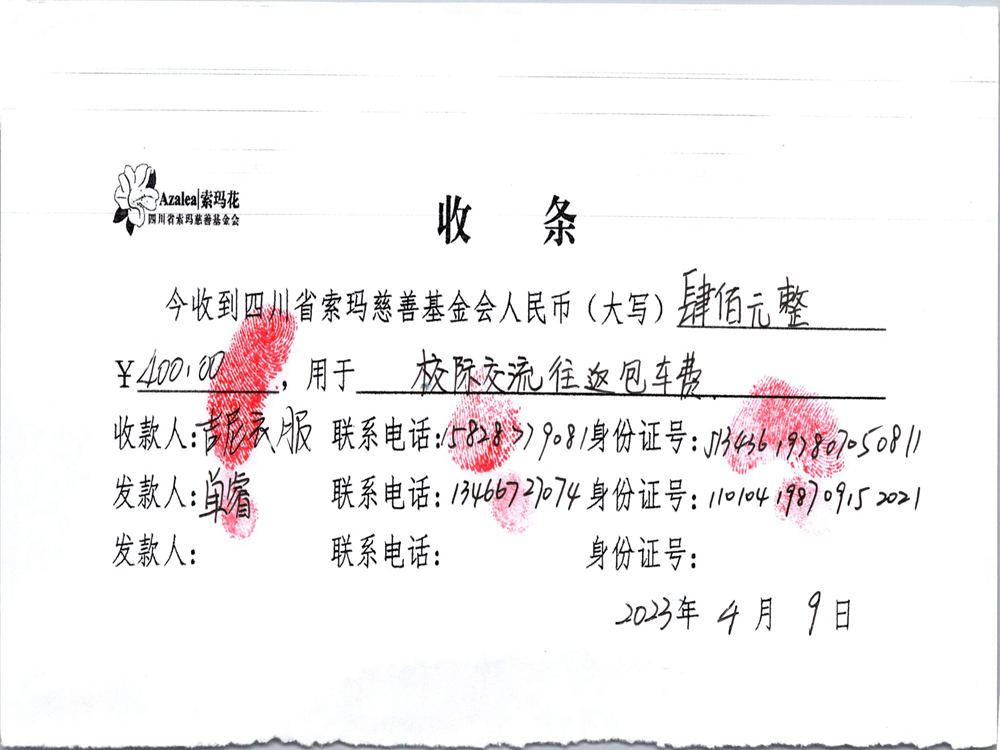 Azalea|索玛花
四川省索玛慈善基金会
收 条
今收到四川省索玛慈善基金会人民币（大写）肆佰元整
￥400.00，用于 校际交流往返包车费
收款人:吉尼衣服 联系电话:15828379081 身份证号:513436197807050811
发款人:单睿 联系电话:13466727074 身份证号:110104198709152021
发款人: 联系电话: 身份证号:
2023年 4月 9日